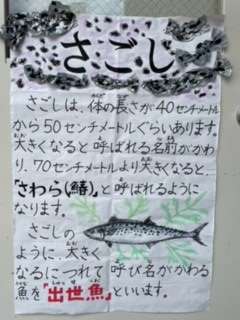 さごし
さごしは、体の長さが40センチメートル
から50センチメートルぐらいあります。
大きくなると呼ばれる名前がかわ
り、70センチメートルより大きくなると、
「さわら(鰆)」と呼ばれるように
なります。
さごしの
ように、大きく
なるにつれて呼び名がかわる
魚を「出世魚」といいます。